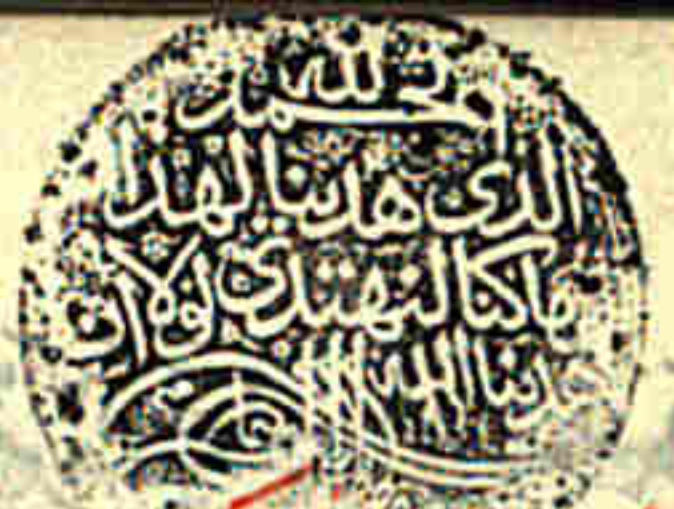 الحمد لله
الذى هدينا لهذا
ما كنا لنهتدي لولا ان
هدينا الله